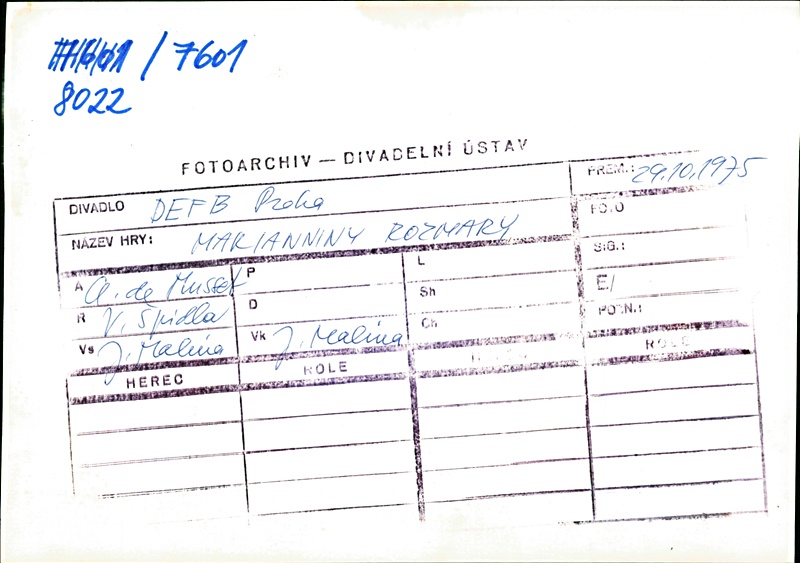 / 7601
8022
FOTOARCHIV — DIVADELNÍ ÚSTAV
DIVADLO DEFB Praha PREM.: 29.10.1975
NÁZEV HRY: MARIANNINY ROZMARY FOTO
A A. de Musset P L SIG.:
R V. Špidla D Sh E/
Vs J. Malina Vk J. Malina Ch POZN.:
HEREC ROLE HEREC ROLE